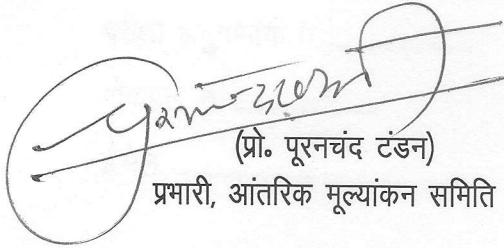 (प्रो॰ पूरनचंद टंडन)
प्रभारी, आंतरिक मूल्यांकन समिति